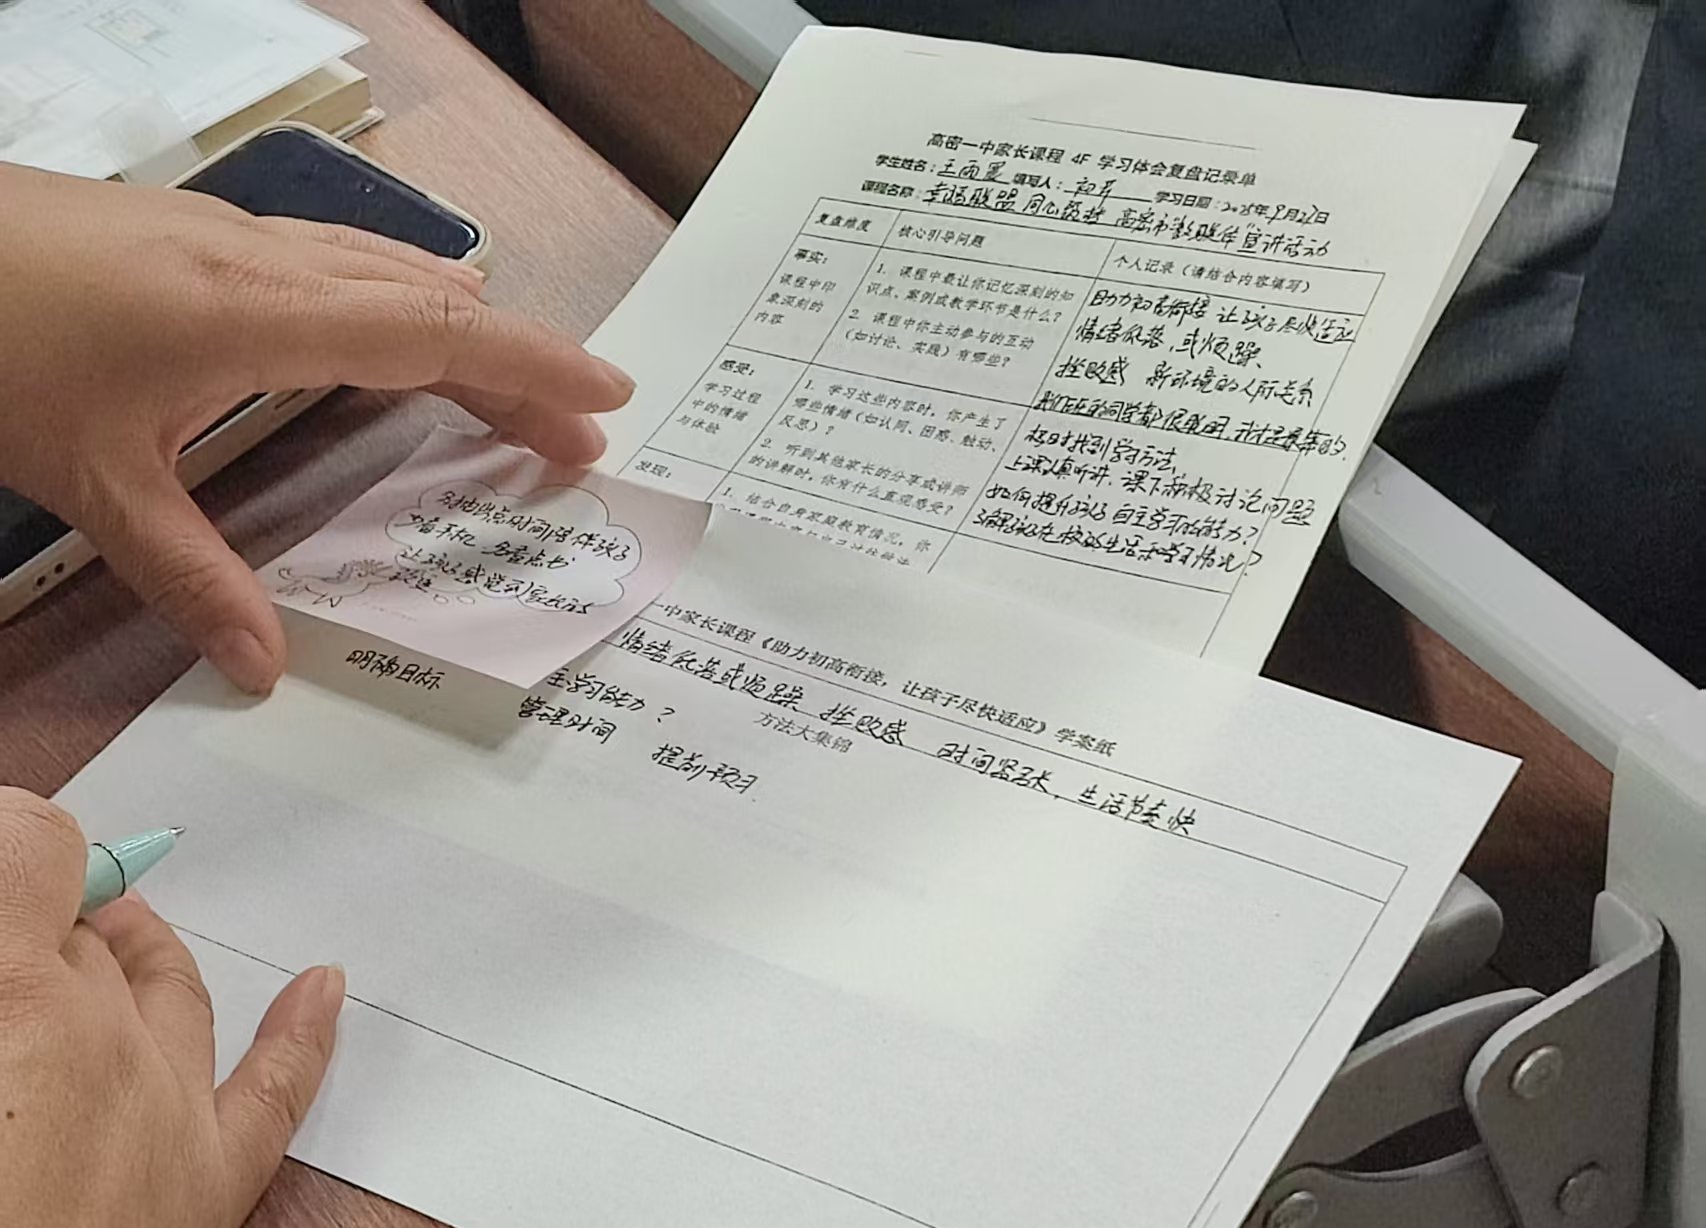 高密一中家长课程 4F 学习体会复盘记录单
学生姓名：王雨 填写人： 学习日期：2025年9月27日
课程名称：幸福联盟 同心 高密市 宣讲活动
复盘维度
核心引导问题
个人记录（请结合内容填写）
事实：
课程中印
象深刻的
内容
1. 课程中最让你记忆深刻的知
识点、案例或教学环节是什么？
2. 课程中你主动参与的互动
（如讨论、实践）有哪些？
助力初高衔接 让孩子尽快适应
情绪低落，或烦躁、
挫败感 新环境的人际关系
感受：
学习过程
中的情绪
与体验
1. 学习这些内容时，你产生了
哪些情绪（如认同、困惑、触动、
反思）？
2. 听到其他家长的分享或讲师
的讲解时，你有什么直观感受？
我们班的同学都很聪明，我才是最笨的.
及时找到学习方法，
上课认真听讲，课下积极讨论问题
如何提升孩子自主学习的能力？
了解孩子在校的生活和学习情况？
发现：
1. 结合自身家庭教育情况，你
多抽出点时间陪伴孩子
少看手机 多看点书
让孩子感觉到家长的
明确目标
一中家长课程《助力初高衔接，让孩子尽快适应》学案纸
情绪低落或烦躁 挫败感 时间紧张，生活节奏快
方法大集锦
主学习能力？
管理时间 提前预习.